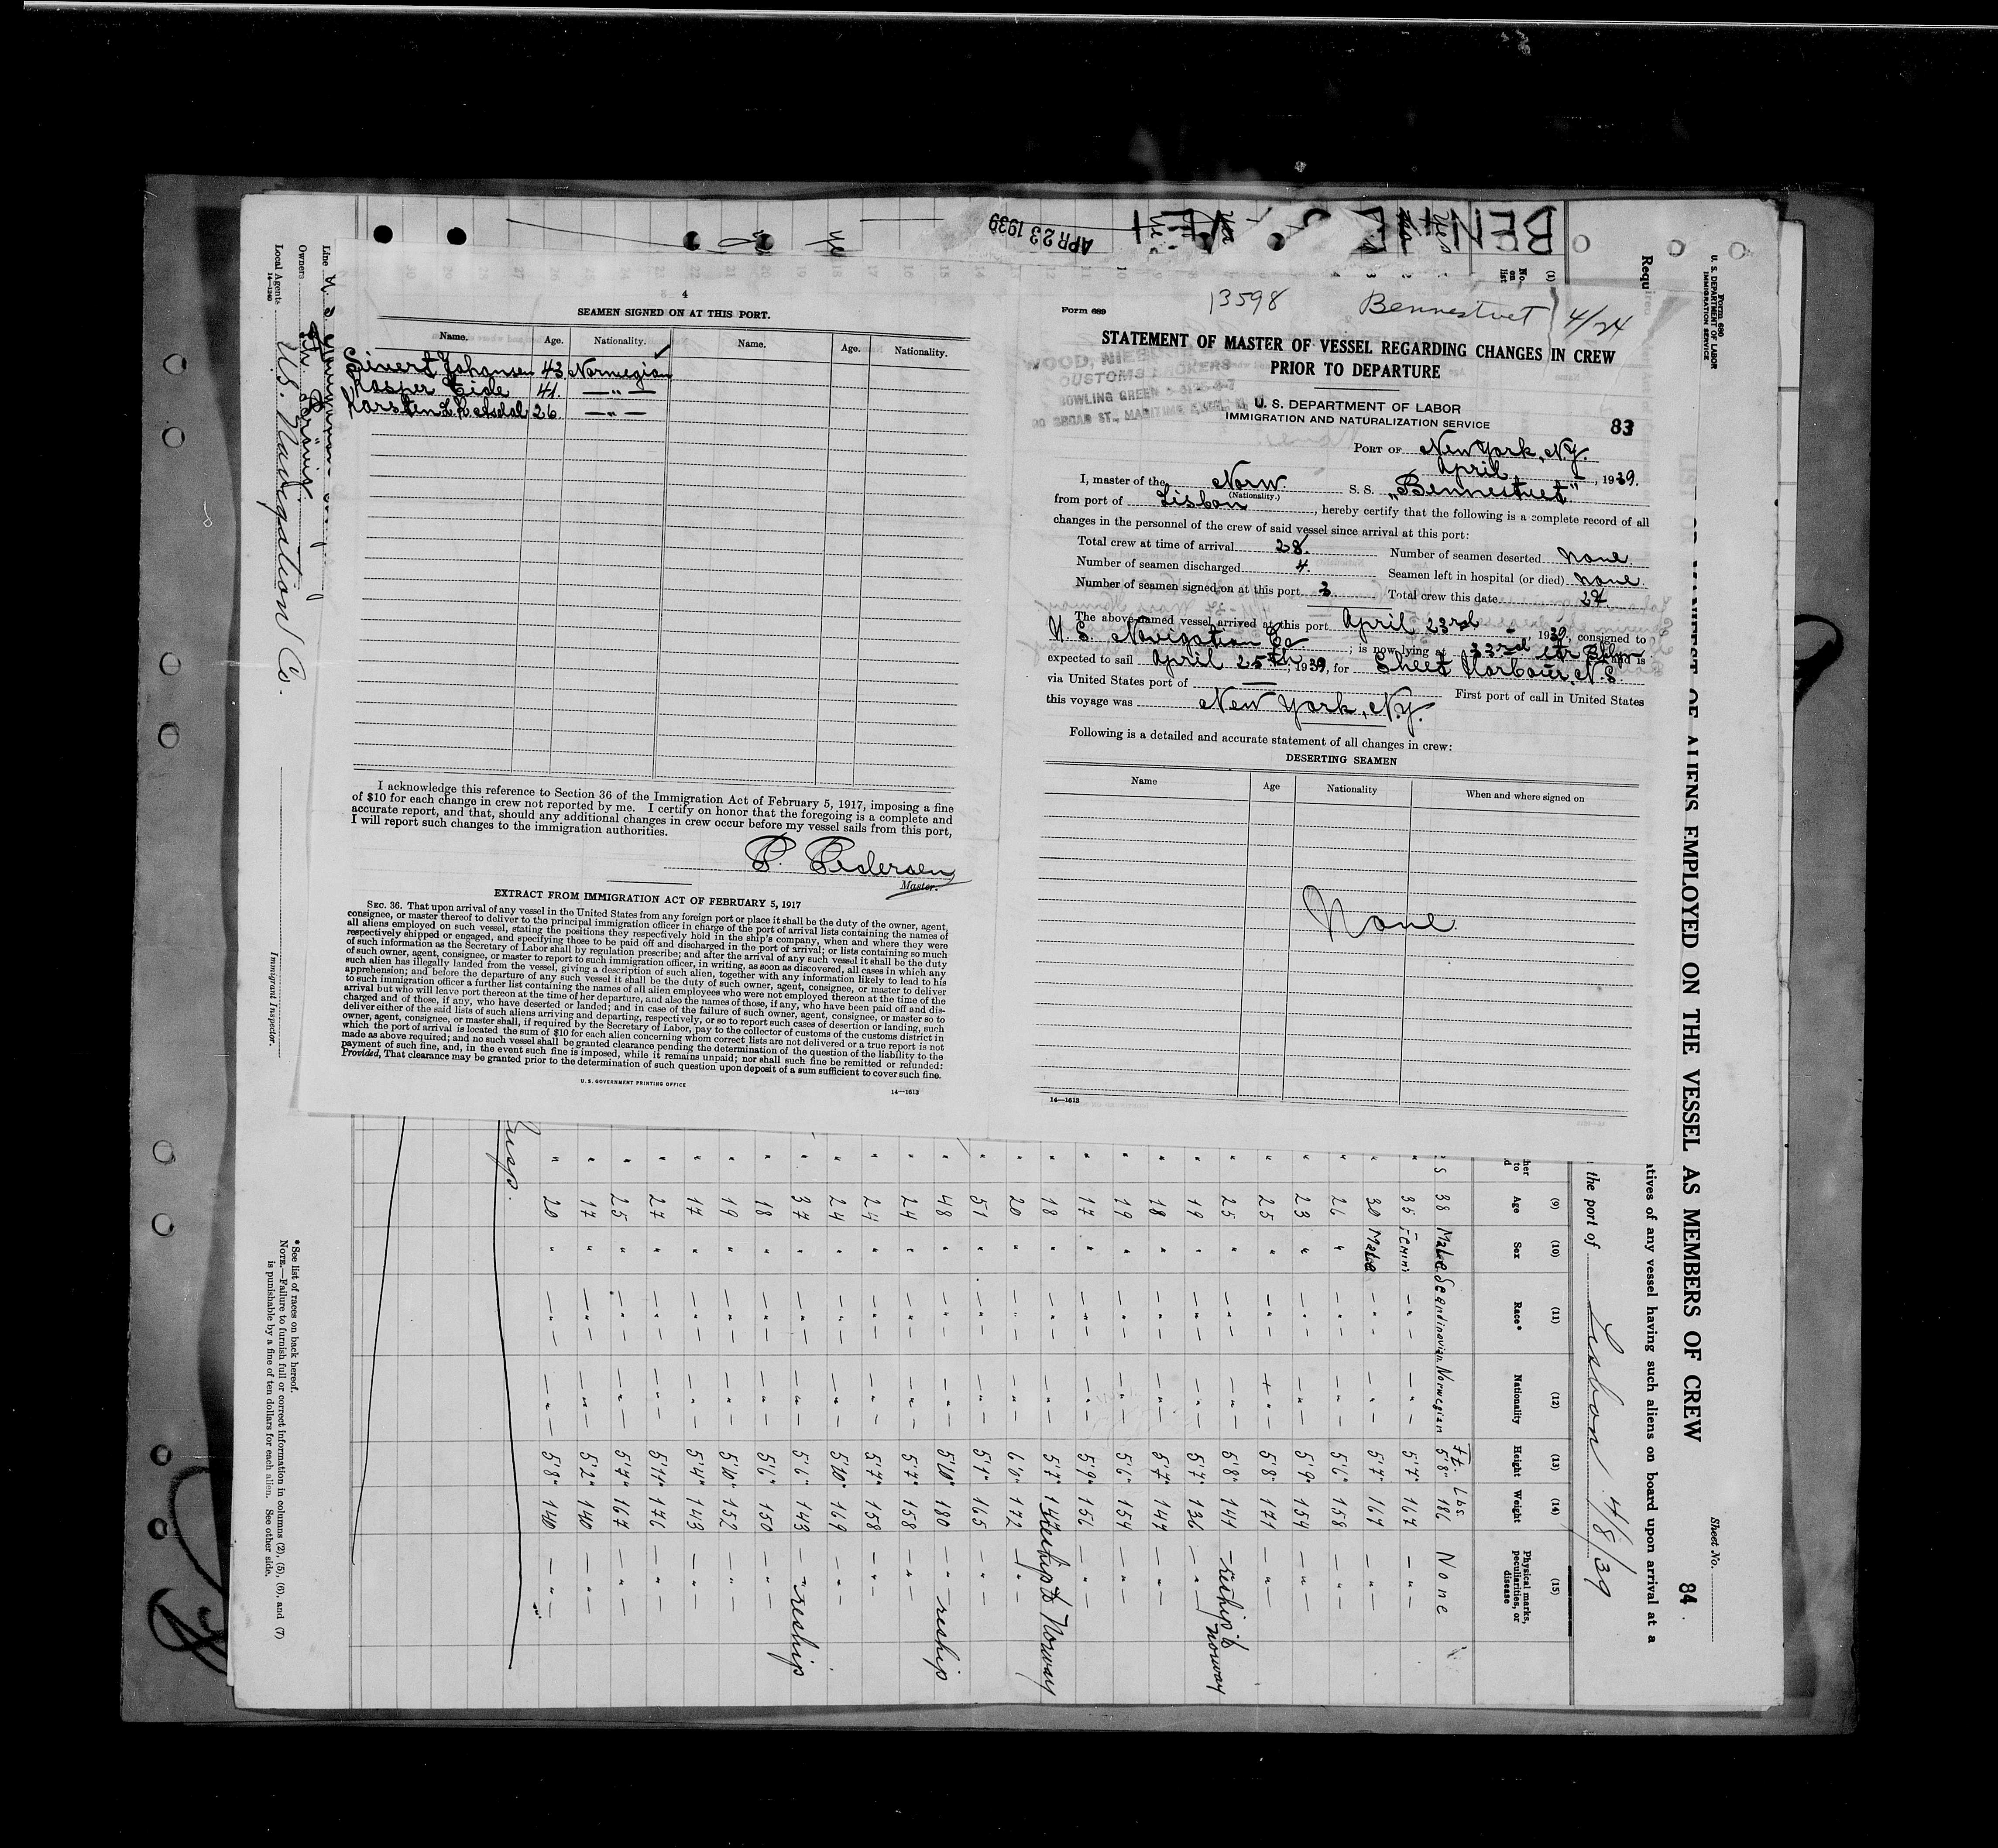 4
SEAMEN SIGNED ON AT THIS PORT.
Name. Age. Nationality. Name. Age. Nationality.
Sivert Johansen 43. Norwegian
Kasper Eide 41. — " —
Karsten 26. — " —
I acknowledge this reference to Section 36 of the Immigration Act of February 5, 1917, imposing a fine
of $10 for each change in crew not reported by me. I certify on honor that the foregoing is a complete and
accurate report, and that, should any additional changes in crew occur before my vessel sails from this port,
I will report such changes to the immigration authorities.
P. Pedersen
Master.
EXTRACT FROM IMMIGRATION ACT OF FEBRUARY 5, 1917
SEC. 36. That upon arrival of any vessel in the United States from any foreign port or place it shall be the duty of the owner, agent,
consignee, or master thereof to deliver to the principal immigration officer in charge of the port of arrival lists containing the names of
all aliens employed on such vessel, stating the positions they respectively hold in the ship's company, when and where they were
respectively shipped or engaged, and specifying those to be paid off and discharged in the port of arrival; or lists containing so much
of such information as the Secretary of Labor shall by regulation prescribe; and after the arrival of any such vessel it shall be the duty
of such owner, agent, consignee, or master to report to such immigration officer, in writing, as soon as discovered, all cases in which any
such alien has illegally landed from the vessel, giving a description of such alien, together with any information likely to lead to his
apprehension; and before the departure of any such vessel it shall be the duty of such owner, agent, consignee, or master to deliver
to such immigration officer a further list containing the names of all alien employees who were not employed thereon at the time of the
arrival but who will leave port thereon at the time of her departure, and also the names of those, if any, who have been paid off and dis-
charged and of those, if any, who have deserted or landed; and in case of the failure of such owner, agent, consignee, or master so to
deliver either of the said lists of such aliens arriving and departing, respectively, or so to report such cases of desertion or landing, such
owner, agent, consignee, or master shall, if required by the Secretary of Labor, pay to the collector of customs of the customs district in
which the port of arrival is located the sum of $10 for each alien concerning whom correct lists are not delivered or a true report is not
made as above required; and no such vessel shall be granted clearance pending the determination of the question of the liability to the
payment of such fine, and, in the event such fine is imposed, while it remains unpaid; nor shall such fine be remitted or refunded:
Provided, That clearance may be granted prior to the determination of such question upon deposit of a sum sufficient to cover such fine.
U. S. GOVERNMENT PRINTING OFFICE
14—1613
Form 689
13598 Bennestvet 4/24
STATEMENT OF MASTER OF VESSEL REGARDING CHANGES IN CREW
PRIOR TO DEPARTURE
CUSTOMS BROKERS
BOWLING GREEN
U. S. DEPARTMENT OF LABOR
IMMIGRATION AND NATURALIZATION SERVICE
83
PORT OF New York, N.Y.
April, 1939.
I, master of the Norw. S. S. "Bennestvet"
(Nationality.)
from port of Lisbon, hereby certify that the following is a complete record of all
changes in the personnel of the crew of said vessel since arrival at this port:
Total crew at time of arrival 28. Number of seamen deserted None
Number of seamen discharged 4. Seamen left in hospital (or died) None.
Number of seamen signed on at this port 3 Total crew this date 27
The above-named vessel arrived at this port April 23rd, 1939, consigned to
U. S. Navigation Co; is now lying at 33rd str Bklyn and is
expected to sail April 25th, 1939, for Sheet Harbour, N.S
via United States port of — First port of call in United States
this voyage was New York, N.Y.
Following is a detailed and accurate statement of all changes in crew:
DESERTING SEAMEN
Name Age Nationality When and where signed on
None
14—1613
APR 23 1939
Form 680
U. S. DEPARTMENT OF LABOR
IMMIGRATION SERVICE
Sheet No.
84
OF ALIENS EMPLOYED ON THE VESSEL AS MEMBERS OF CREW
atives of any vessel having such aliens on board upon arrival at a
the port of Lisbon 4/8/39
(1) (9) (10) (11) (12) (13) (14) (15)
No. on list Age Sex Race* Nationality Height Weight Physical marks, peculiarities, or disease
38 Male Scandinavian Norwegian 5'8" 186 None
35 5'7" 167
30 Male 5'7" 167
26 5'6" 158
23 5'9" 154
25 5'8" 171
25 5'8" 141 reship to Norway
19 5'7" 136
18 5'7" 147
19 5'6" 154
17 5'9" 156
18 5'7" 147 reship to Norway
20 6'0" 172
51 5'1" 165
48 5'10" 180 reship
24 5'7" 158
24 5'7" 158
24 5'10" 169
37 5'6" 143 reship
18 5'6" 150
19 5'10" 152
17 5'4" 143
27 5'11" 176
25 5'7" 167
17 5'2" 140
20 5'8" 140
Line
Owners
Local Agents U.S. Navigation Co.
14—1240
Immigrant Inspector.
*See list of races on back hereof.
NOTE.—Failure to furnish full or correct information in columns (2), (5), (6), and (7)
is punishable by a fine of ten dollars for each alien. See other side.